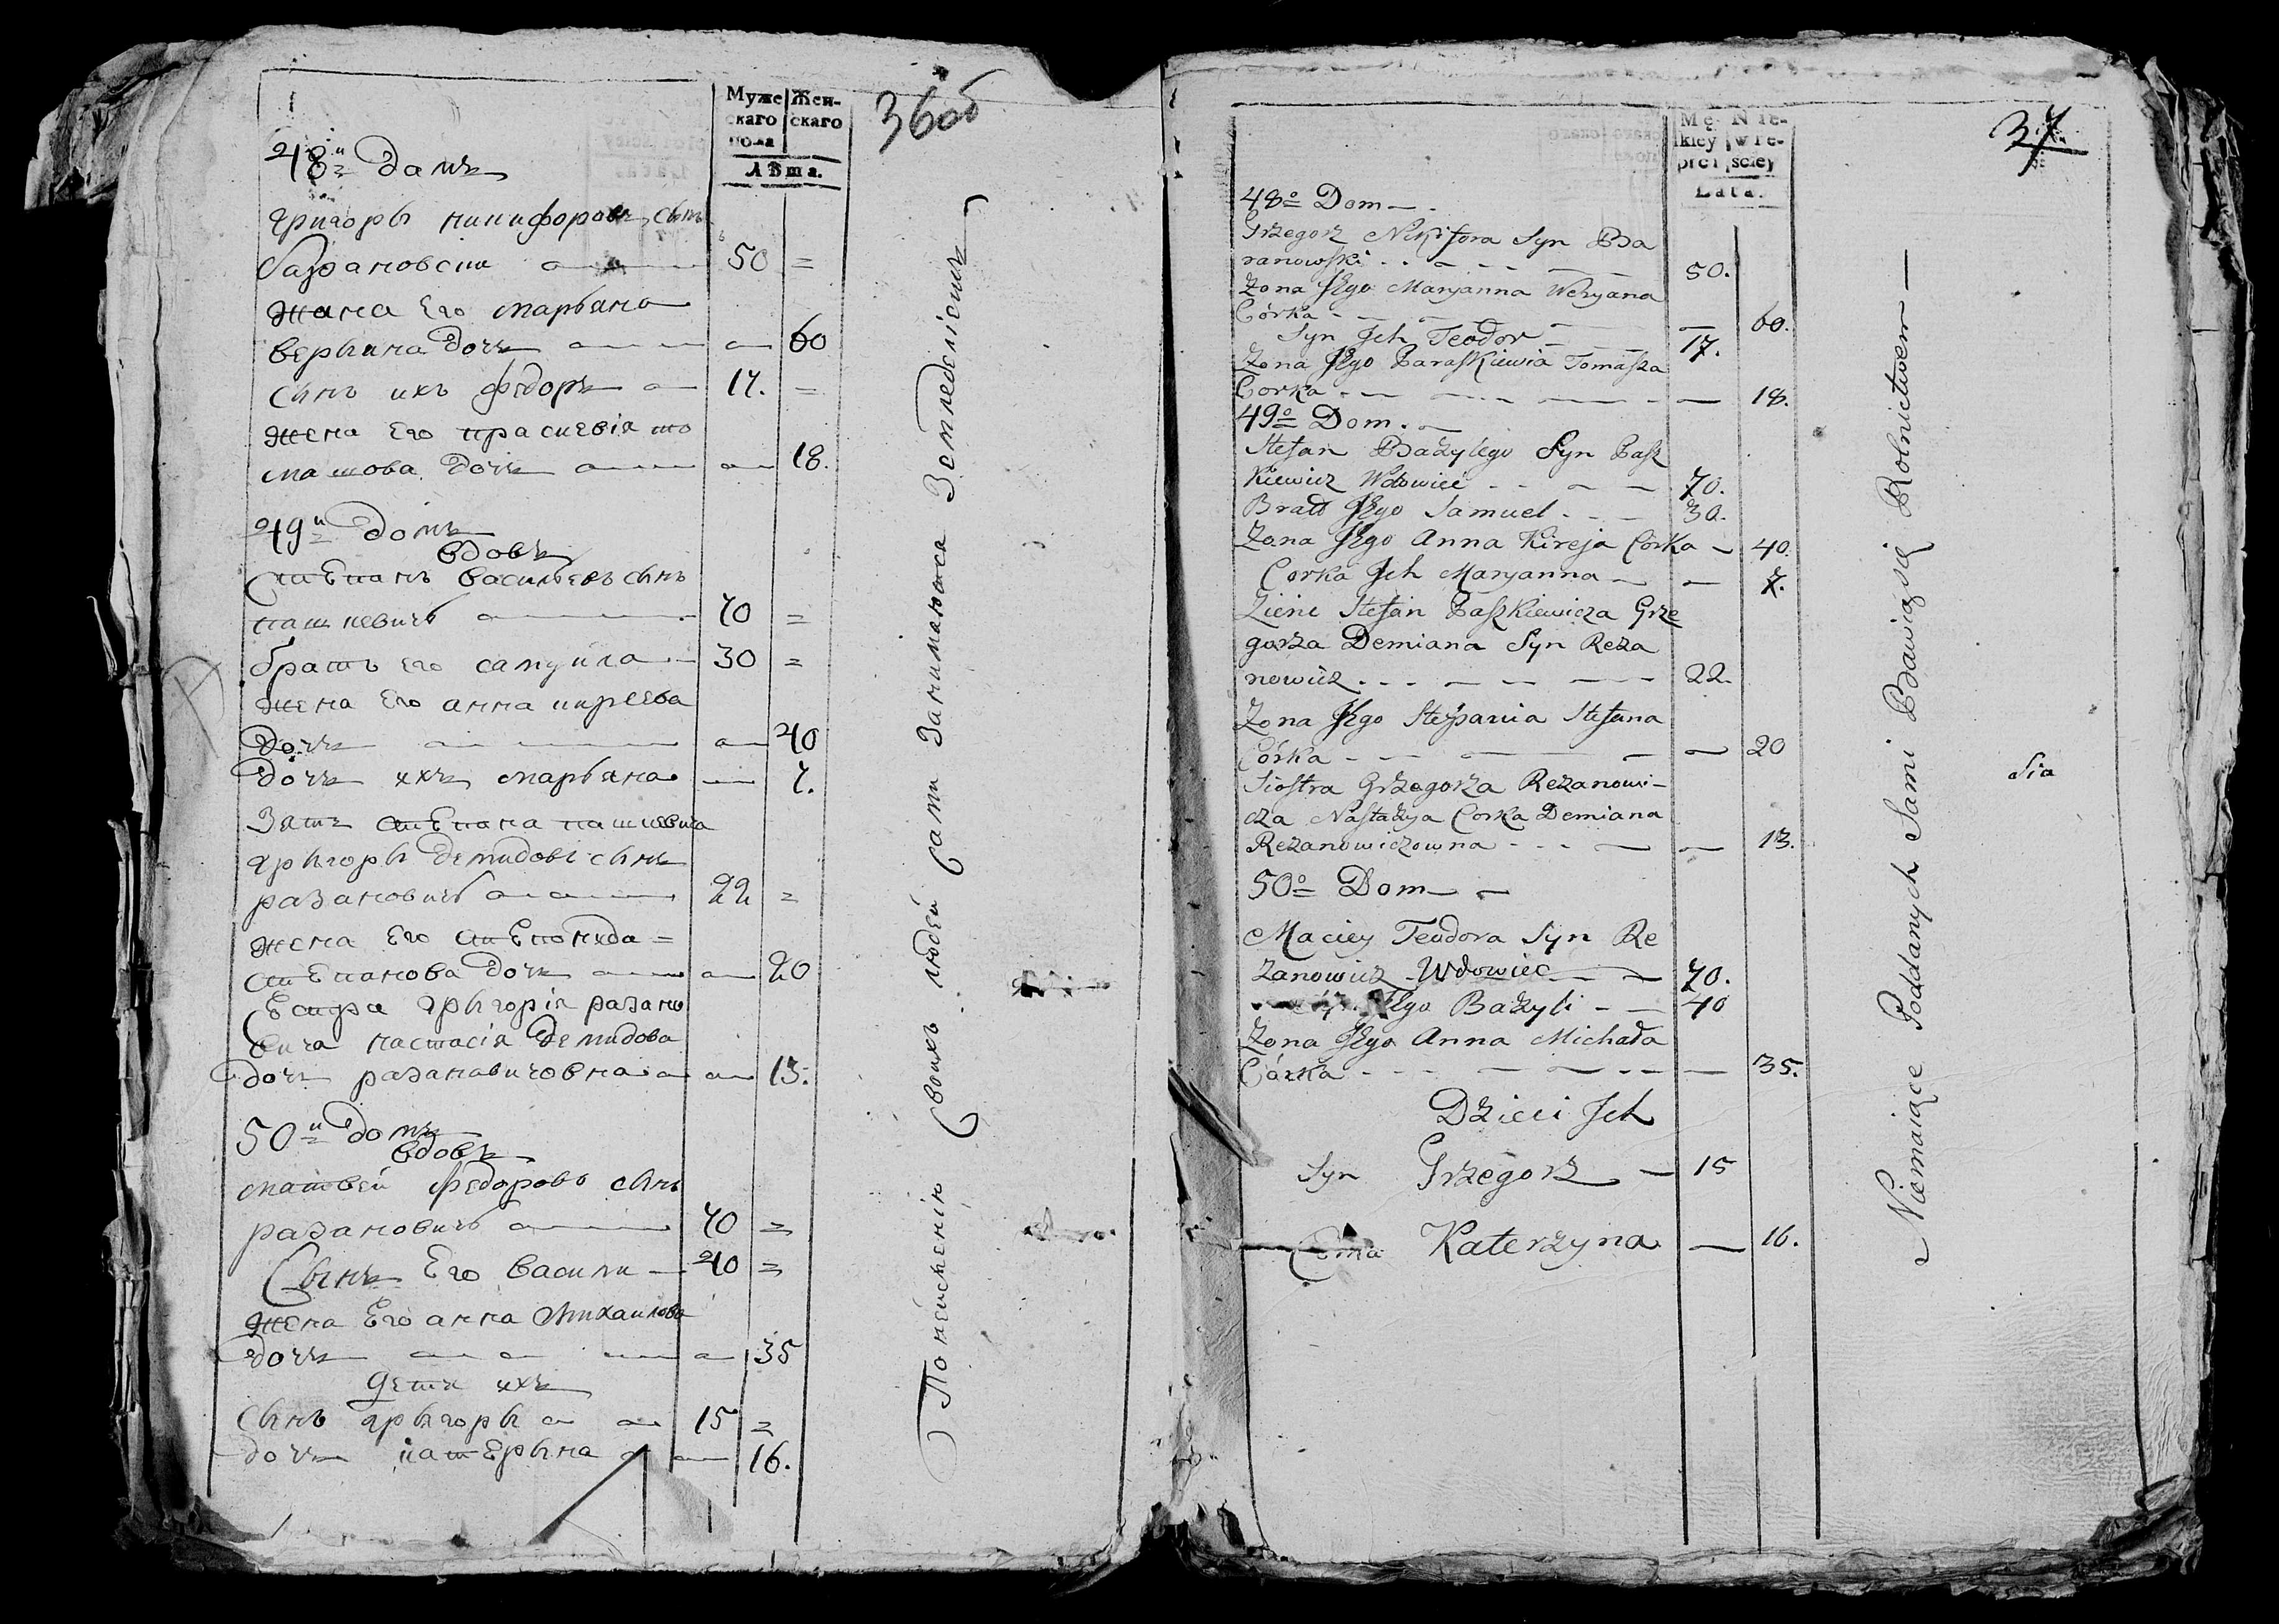 Муже Жен-
скаго скаго
пола
Лѣта.
36об
48й домъ
григоры никифоровъ сынъ
барановски 50 =
жена Его марьяна
верына дочь 60
сынъ ихъ федоръ 17. =
жена Его праскевія то
машова дочь 18.
49й домъ
вдовъ
степанъ васильевъ сынъ
пашкевичъ 70 =
братъ его самуйла 30 =
жена Его анна кирѣева
дочь 40
дочь ихъ марьяна 7.
Зять степана пашкевича
грыгоры демидовъ сынъ
разановичъ 22 =
жена Его степонида =
степанова дочь 20
Сестра грыгорія разано
вича настасія демидова
дочь разановичовна 13.
50й домъ
вдовъ
матвей федоровъ сынъ
разановичъ 70 =
Сынъ Его васили 40 =
жена Его анна михаилова
дочь 35
дети ихъ
сынъ грыгоры 15 =
дочь катерына 16.
Понеискенію Своихъ людей Сами Занимаюца Земледеліемъ
37
Mę- N ie-
kiey wie-
płci sciey
Lata.
48o Dom
Grzegorz Nikifora Syn Ba
ranowski 50.
Zona Jego Maryanna Weryana
Córka 60.
Syn Jch Teodor 17.
Zona Jego Paraskiewia Tomasza
Corka 18.
49o Dom.
Stefan Bazylego Syn Pasz
kiewicz Wdowiec 70.
Bratt Jego Samuel 30.
Zona Jego Anna Kireja Córka 40.
Corka Jch Maryanna 7.
Zienc Stefan Paszkiewicza Grze
gorza Demiana Syn Reza
nowicz 22.
Zona Jego Stepania Stefana
Córka 20
Siostra Grzegorza Rezanowi-
cza Nastazya Corka Demiana
Rezanowiczowna 13.
50o Dom
Maciey Teodora Syn Re
zanowicz Wdowiec 70.
Jego Bazyli 40
Zona Jego Anna Michała
Córka 35.
Dzieci Jch
Syn Grzegorz 15
Katerzyna 16.
Niemaiące Poddanych Sami Bawią się Rolnictwem
Sia